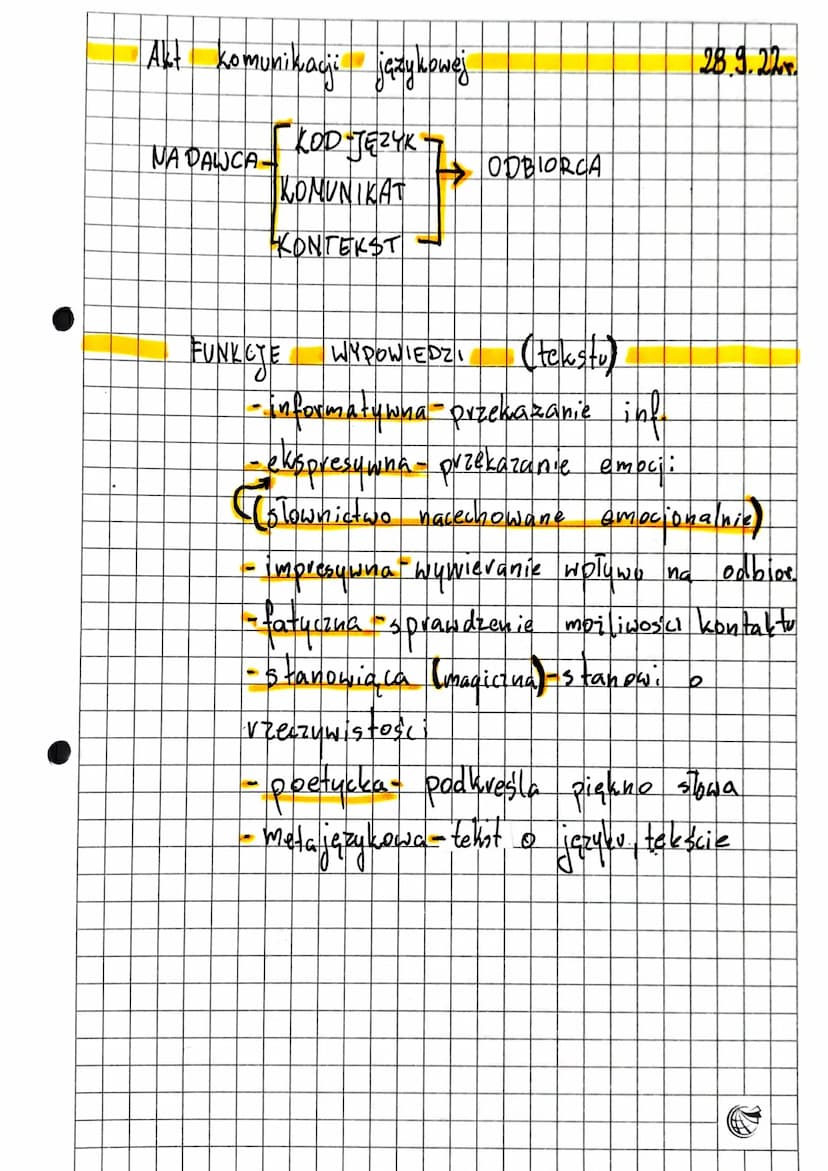 Akt komunikacji językowej 28.9.22r.
NADAWCA KOD-JĘZYK ODBIORCA
KOMUNIKAT
KONTEKST
FUNKCJE WYPOWIEDZI (tekstu)
- informatywna - przekazanie inf.
- ekspresywna - przekazanie emocji
(słownictwo nacechowane emocjonalnie)
- impresywna - wywieranie wpływu na odbior.
- fatyczna - sprawdzenie możliwości kontaktu
- stanowiąca (magiczna) - stanowi o
rzeczywistości
- poetycka - podkreśla piękno słowa
- metajęzykowa - tekst o języku, tekście